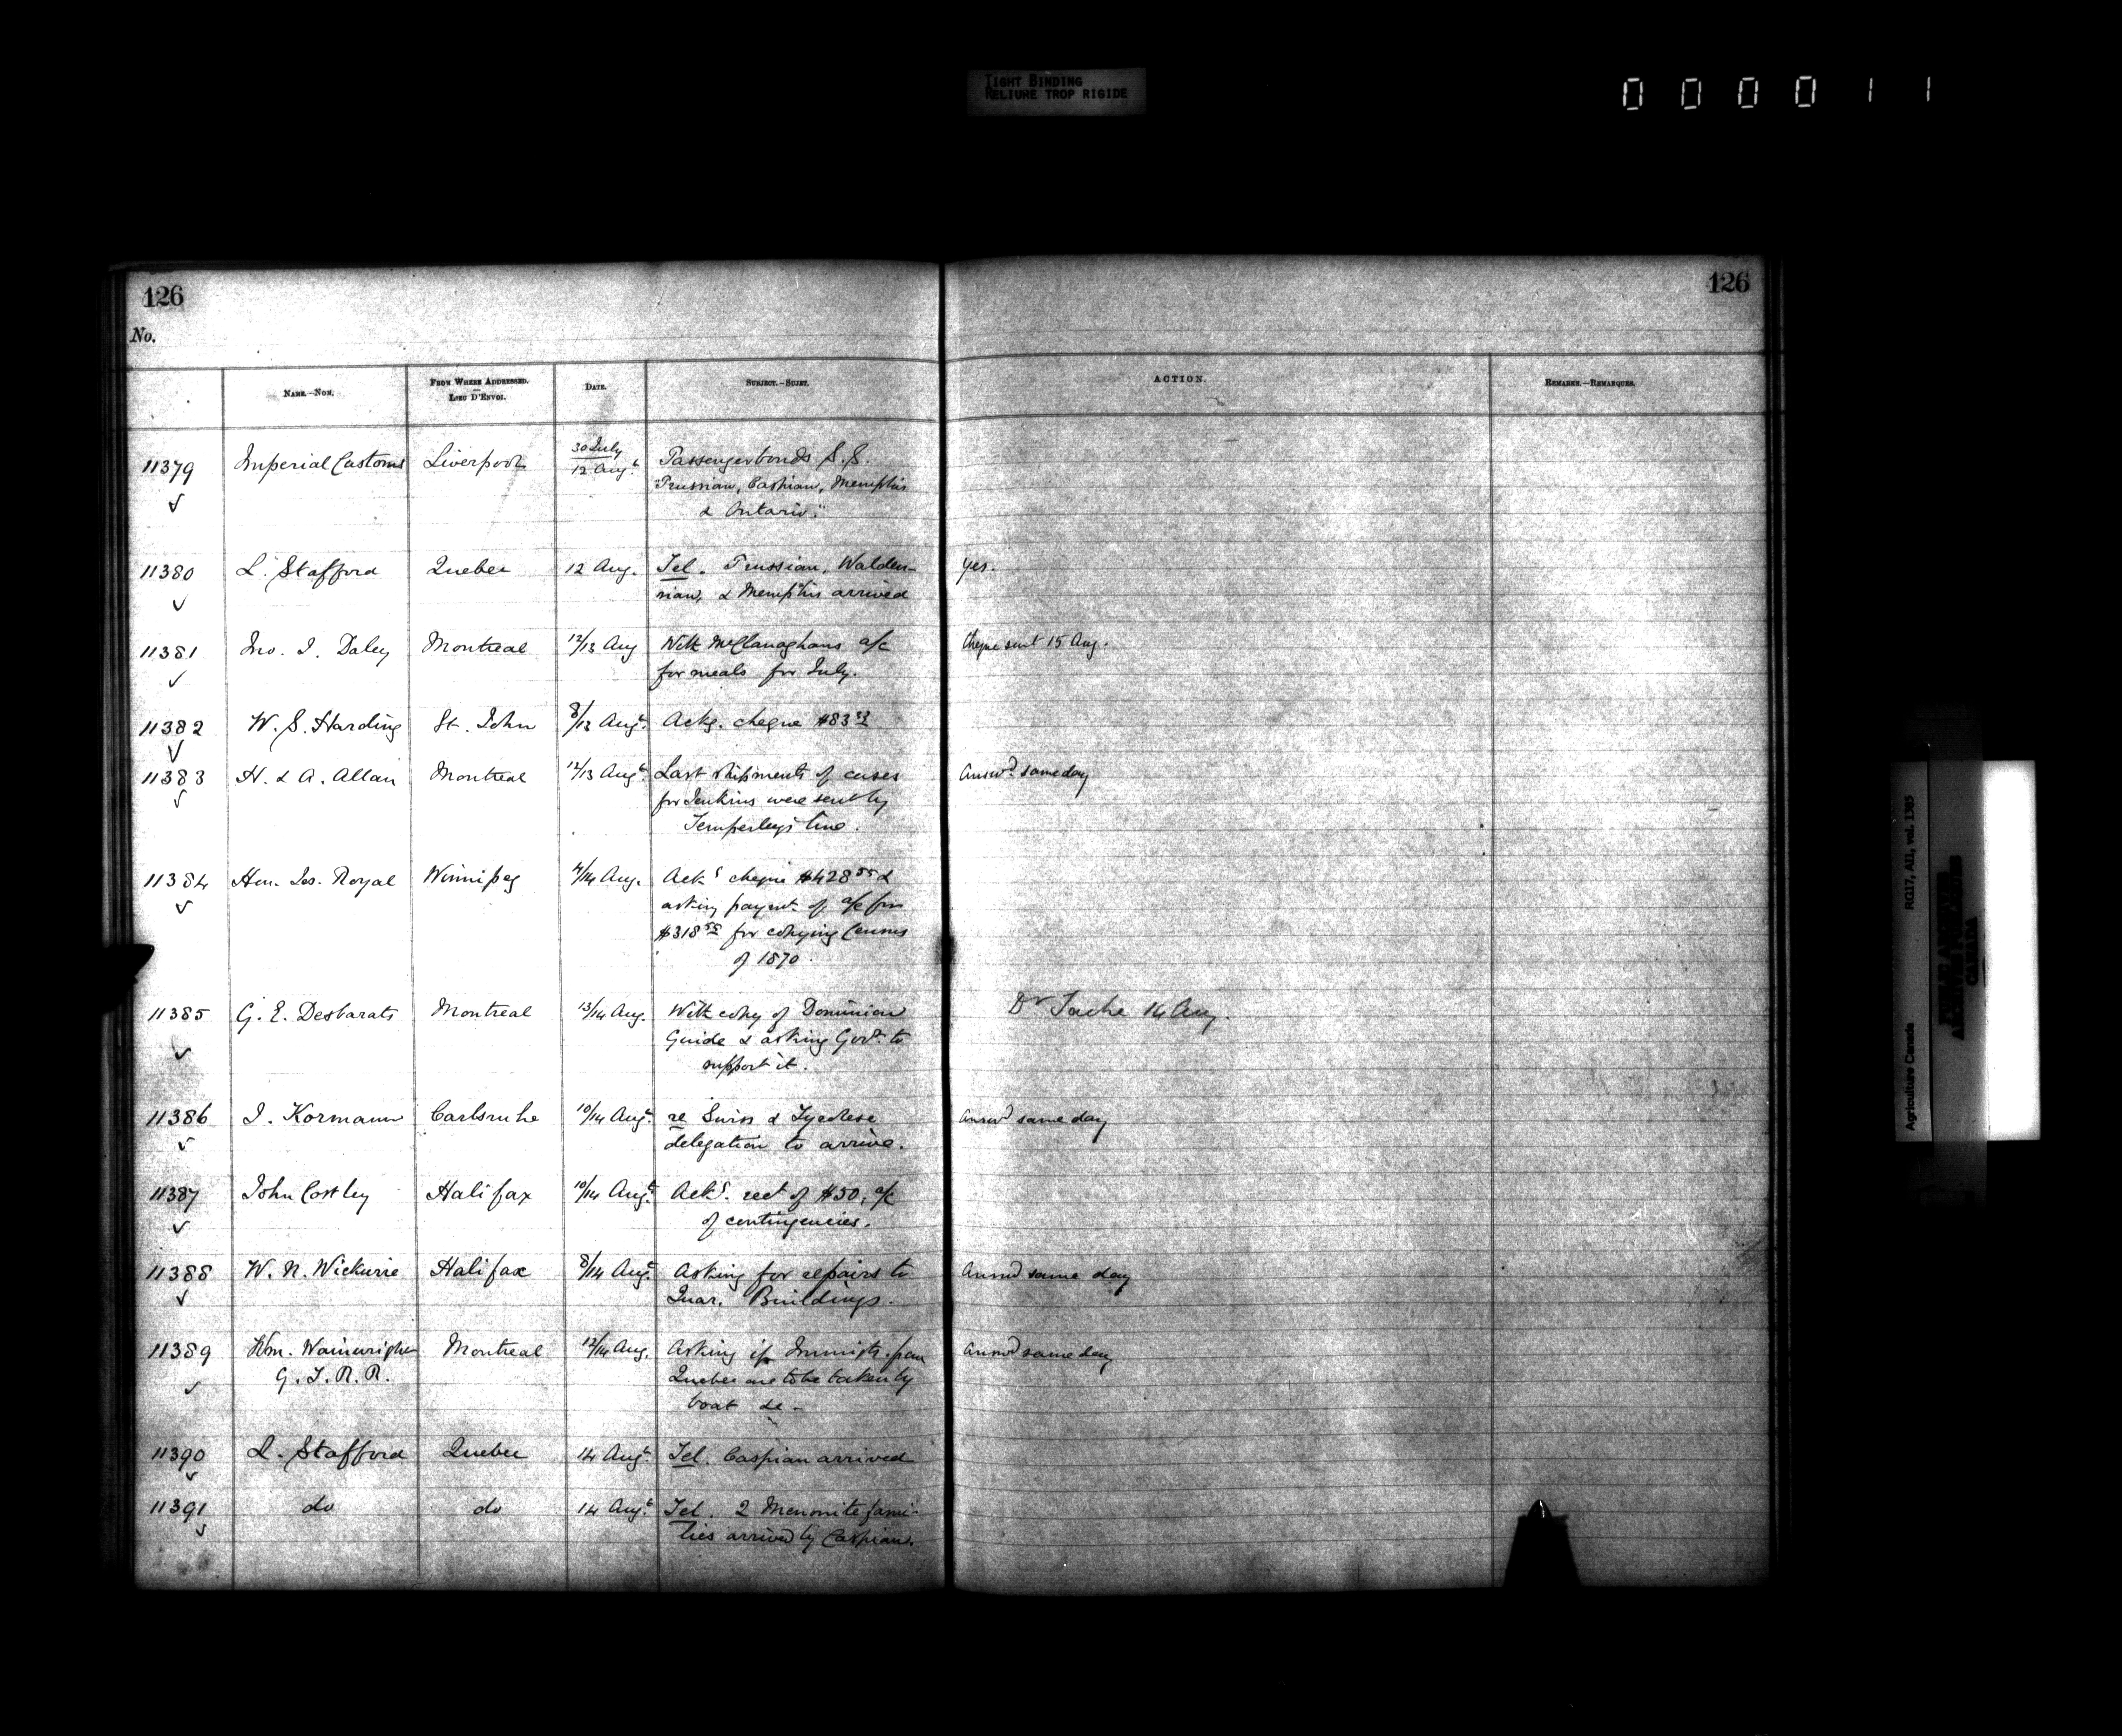 TIGHT BINDING
RELIURE TROP RIGIDE
000011
126
126
No.
NAME.—NOM.
FROM WHERE ADDRESSED.
LIEU D'ENVOI.
DATE.
SUBJECT.—SUJET.
ACTION.
REMARKS.—REMARQUES.
11379 Imperial Customs Liverpool 30 July / 12 Augt. Passenger bonds S.S.
"Prussian, Caspian, Memphis
& Ontario."
11380 L. Stafford Quebec 12 Aug. Tel. Prussian, Walden- Yes.
sian, & Memphis arrived
11381 Jno. J. Daley Montreal 12/13 Aug With McClanaghans a/c Cheque sent 15 Aug.
for meals for July.
11382 W. S. Harding St. John 8/13 Augt. Ackg. cheque $83
11383 H. & A. Allan Montreal 12/13 Augt. Last shipments of cases Answd. same day
for Jenkins were sent by
Temperleys line.
11384 Hon. Jos. Royal Winnipeg 4/14 Aug. Acks cheque $428 55 &
asking paymt. of a/c for
$318 55 for copying Census
of 1870.
11385 G. E. Desbarats Montreal 13/14 Aug. With copy of Dominion Dr Tache 14 Aug.
Guide & asking Govt. to
support it.
11386 J. Kormann Carlsruhe 10/14 Augt. re Swiss & Tyrolese Answd same day
delegation to arrive.
11387 John Costley Halifax 10/14 Augt. Acks. rect of $50, a/c
of contingencies.
11388 W. N. Wickwire Halifax 8/14 Augt. Asking for repairs to Answd same day
Quar. Buildings.
11389 Wm. Wainwright Montreal 12/14 Aug. Asking if Immigts. from Answd same day
G. T. R. R. Quebec are to be taken by
boat &c -
11390 L. Stafford Quebec 14 Augt. Tel. Caspian arrived
11391 do do 14 Augt. Tel. 2 Menonite fami-
lies arrived by Caspian.
Agriculture Canada RG17, AII, vol. 1385
PUBLIC ARCHIVES
ARCHIVES PUBLIQUES
CANADA